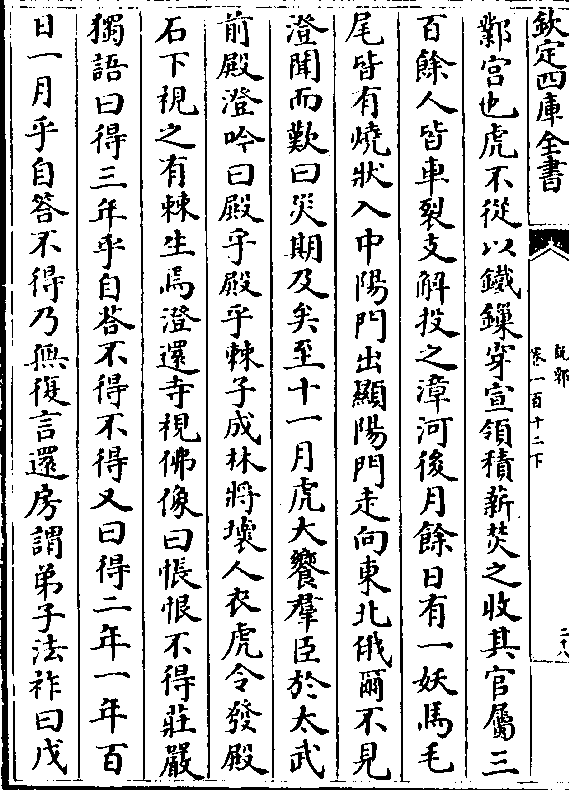 欽定四庫全書
說郛
卷一百十二下
二十八
鄴宫也虎不從以鐵鏁穿宣領積薪焚之收其官屬三
百餘人皆車裂支解投之漳河後月餘日有一妖馬毛
尾皆有燒狀入中陽門出顯陽門走向東北俄爾不見
澄聞而歎曰災期及矣至十一月虎大饗羣臣於太武
前殿澄吟曰殿乎殿乎棘子成林將壞人衣虎令發殿
石下視之有棘生焉澄還寺視佛像曰悵恨不得莊嚴
獨語曰得三年乎自荅不得不得又曰得二年一年百
日一月乎自答不得乃無復言還房謂弟子法祚曰戊